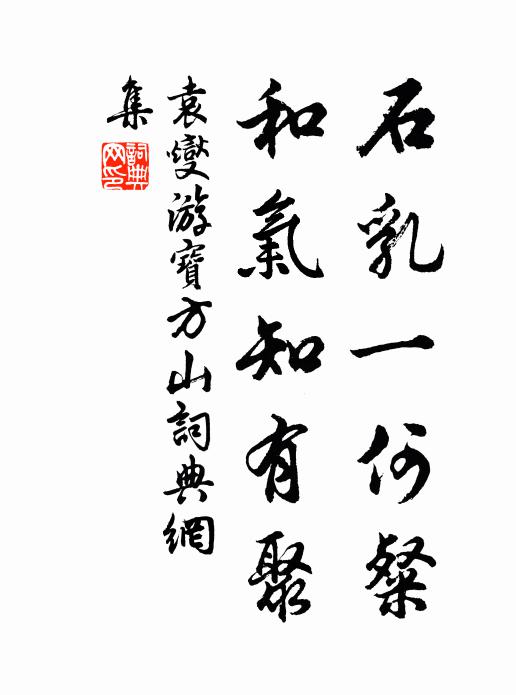 石乳一何粲
和氣知有聚
袁燮游寶方山詞典網
集
詞典
网印